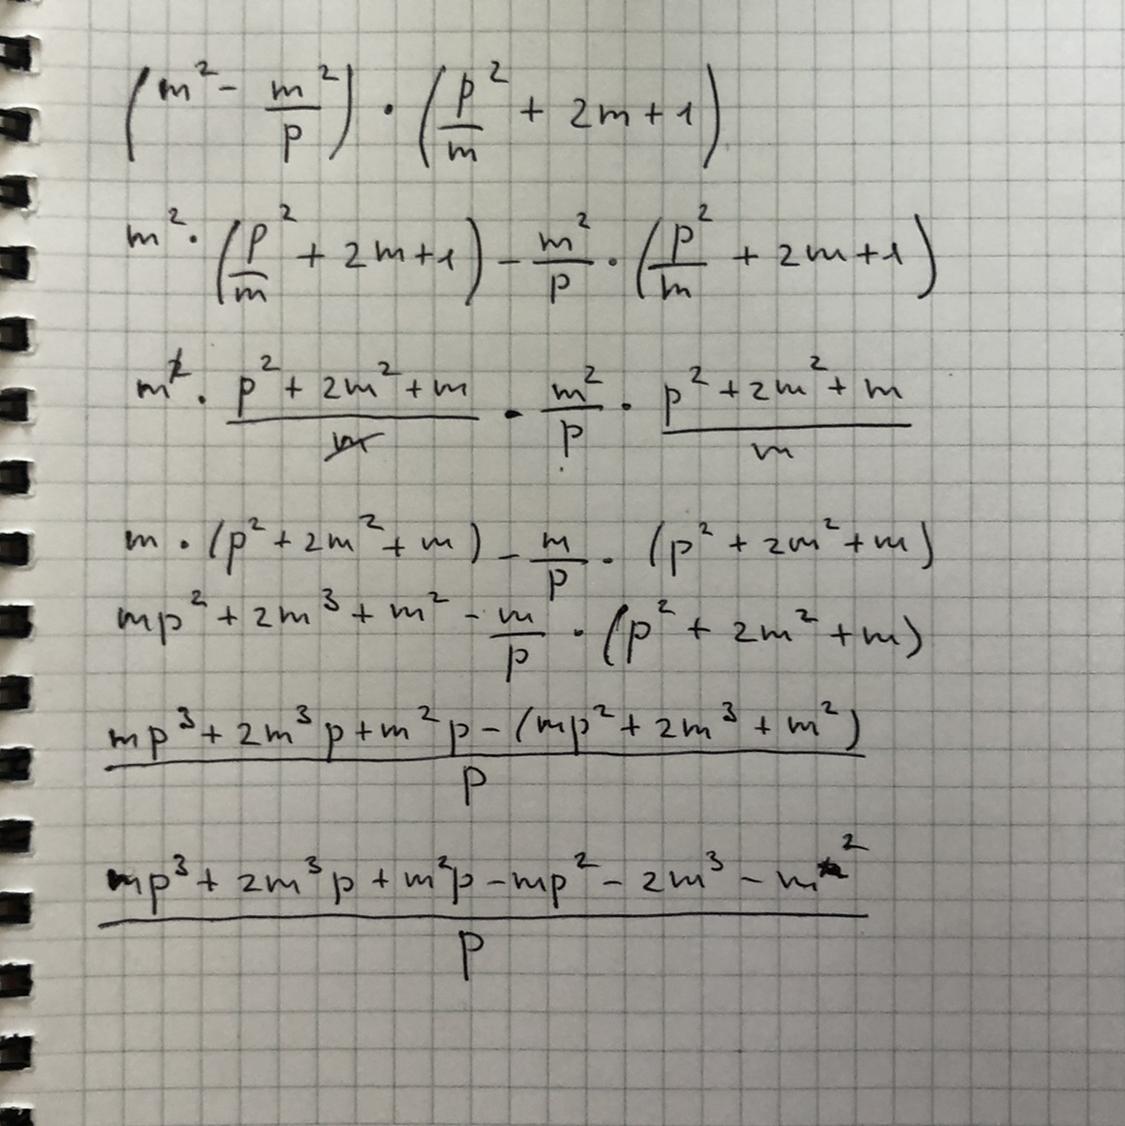 (m² - m²/p) · (p²/m + 2m + 1)
m² · (p²/m + 2m + 1) - m²/p · (p²/m + 2m + 1)
m² · (p² + 2m² + m)/m - m²/p · (p² + 2m² + m)/m
m · (p² + 2m² + m) - m/p · (p² + 2m² + m)
mp² + 2m³ + m² - m/p · (p² + 2m² + m)
(mp³ + 2m³p + m²p - (mp² + 2m³ + m²))/p
(mp³ + 2m³p + m²p - mp² - 2m³ - m²)/p